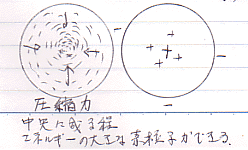 圧縮力
中央に成る程
エネルギーの大きな素粒子ができる.